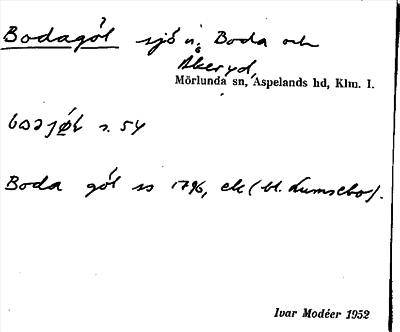 Bodagöl sjö n. Boda och
Åkeryd,
Mörlunda sn, Aspelands hd, Klm. l.
s. 54
Boda göl ss 1796, ek (bl. Lumsebo).
Ivar Modéer 1952